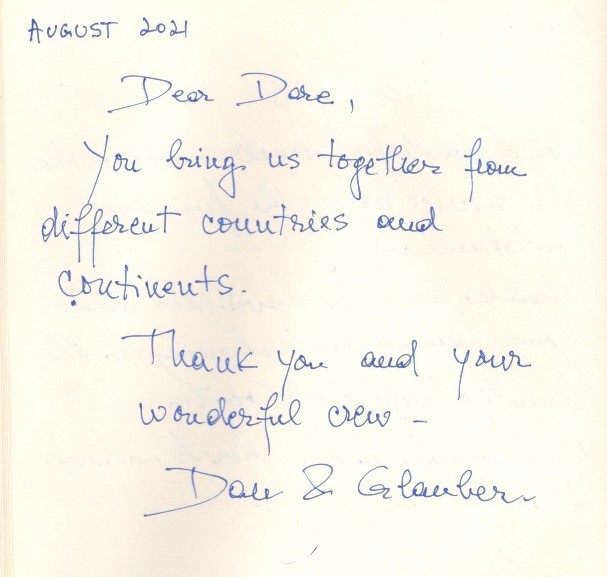 AUGUST 2021
Dear Dare,
You bring us together from
different countries and
continents.
Thank you and your
wonderful crew -
Dan & Glauber